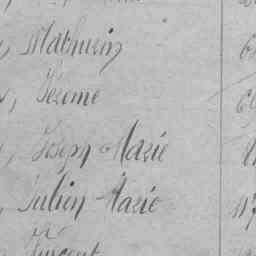 , Mathurin
, Jérome
, Joseph Marie
, Julien Marie
Vincent